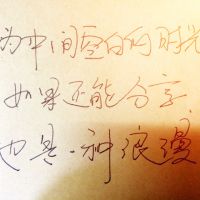 为中间空白的时光
如果还能分享
也是一种浪漫